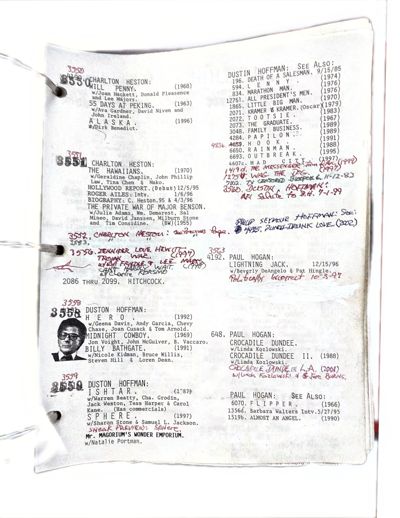 3550
3550 CHARLTON HESTON:
WILL PENNY. (1968)
w/Joan Hackett, Donald Pleasence
and Lee Majors.
55 DAYS AT PEKING. (1963)
w/Ava Gardner, David Niven and
John Ireland.
ALASKA. (1996)
w/Dirk Benedict.
3551
3551 CHARLTON HESTON:
THE HAWAIIANS. (1970)
w/Geraldine Chaplin, John Phillip
Law, Tina Chen & Mako.
HOLLYWOOD REPORT.(Debut)12/5/95
ROGER AILES. 1/6/96
BIOGRAPHY: C. Heston.95 & 4/3/96
THE PRIVATE WAR OF MAJOR BENSON.
w/Julie Adams, Wm. Demarest, Sal (1955)
Mineo, David Janssen, Milburn Stone
and Tim Considine.
3552. CHARLTON HESTON:
3553.
3556. JENNIFER LOVE HEWITT:
TROJAN WAR. (1997)
CAN'T HARDLY WAIT (1998)
2086 THRU 2099. HITCHCOCK.
3558
3558 DUSTON HOFFMAN:
HERO. (1992)
w/Geena Davis, Andy Garcia, Chevy
Chase, Joan Cusack & Tom Arnold.
MIDNIGHT COWBOY. (1969)
Jon Voight, John McGuiver, B. Vaccaro.
BILLY BATHGATE. (1991)
w/Nicole Kidman, Bruce Willis,
Steven Hill & Loren Dean.
3559
3559 DUSTON HOFFMAN:
ISHTAR. (1987)
w/Warren Beatty, Cha. Grodin,
Jack Weston, Tess Harper & Carol
Kane. (Has commercials)
SPHERE. (1997)
w/Sharon Stone & Samuel L. Jackson.
SNEAK PREVIEW:
Mr. MAGORIUM'S WONDER EMPORIUM.
w/Natalie Portman.
DUSTIN HOFFMAN: SEE ALSO:
196. DEATH OF A SALESMAN. 9/15/85
594. LENNY. (1974)
834. MARATHON MAN. (1976)
1275. ALL PRESIDENT'S MEN. (1976)
1865. LITTLE BIG MAN. (1970)
2071. KRAMER & KRAMER.(Oscar)(1979)
2023. TOOTSIE. (1982)
2073. THE GRADUATE. (1967)
3048. FAMILY BUSINESS. (1989)
4284. PAPILLON.
4689. HOOK. (1991)
6650. RAINMAN. (1988)
6693. OUTBREAK. (1995)
6407. MAD CITY. (1997)
WAG THE DOG.
DUSTIN HOFFMAN:
AFI SALUTE TO D.H. 7-1-99
PHILIP SEYMOUR HOFFMAN: SEE:
PUNCH-DRUNK LOVE. (2002)
3563
6192. PAUL HOGAN:
LIGHTNING JACK. 12/15/96
w/Beverly DeAngelo & Pat Hingle.
648. PAUL HOGAN:
CROCADILE DUNDEE.
w/Linda Kozlowski.
CROCADILE DUNDEE II. (1988)
w/Linda Kozlowski.
CROCADILE DUNDEE IN L.A. (2001)
PAUL HOGAN: SEE ALSO:
6070. FLIPPER. (1966)
1356d. Barbara Walters Intv.5/27/95
1519b. ALMOST AN ANGEL. (1990)